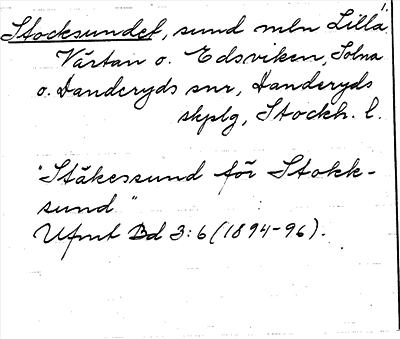 Stocksundet, sund mln Lilla
Värtan o. Edsviken, Solna
o. Danderyds snr, Danderyds
skplg, Stockh. l.
"Stäkessund för Stokk-
sund"
Ufmt Bd 3:6 (1894-96).